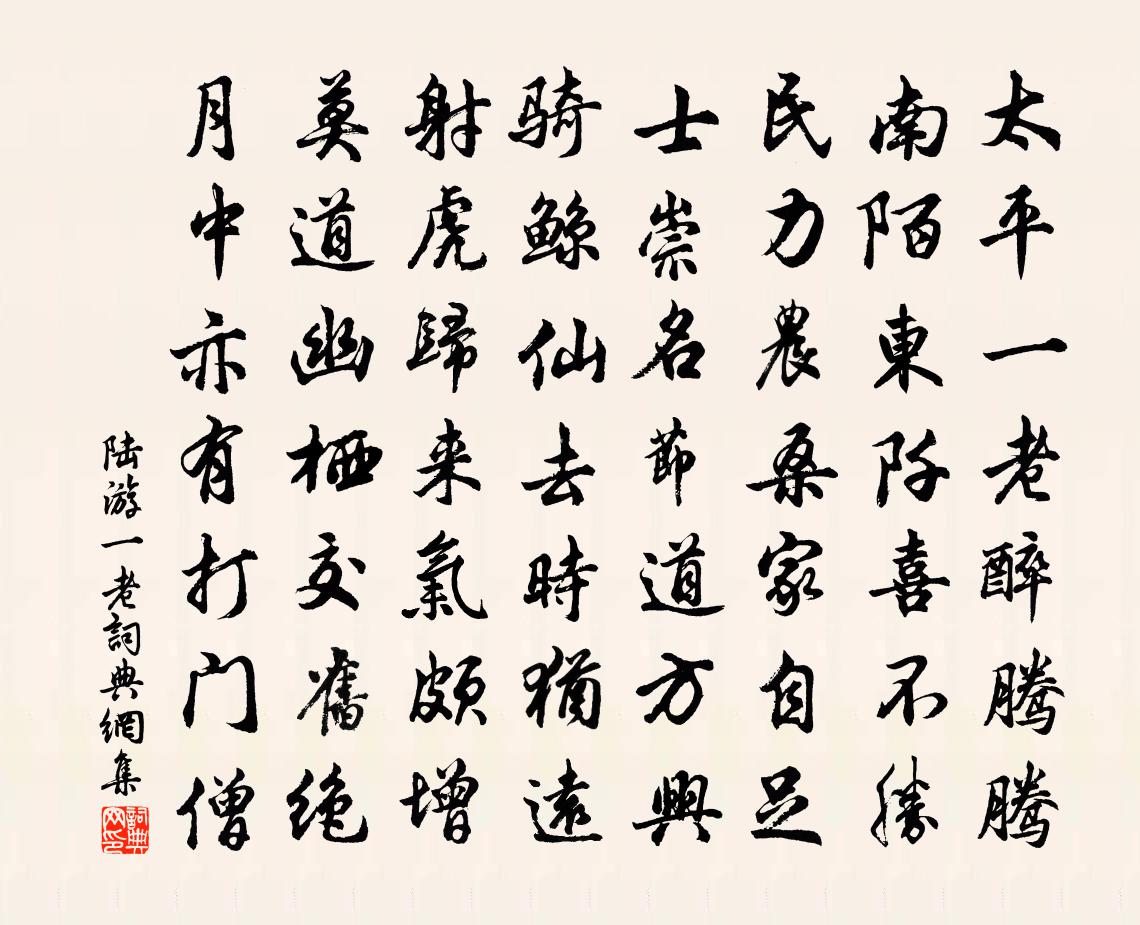 太平一老醉騰騰
南陌東阡喜不勝
民力農桑家自足
士崇名節道方興
騎鯨仙去時猶遠
射虎歸来氣頗增
莫道幽栖交舊绝
月中亦有打门僧
陆游一老詞典網集
詞典网印